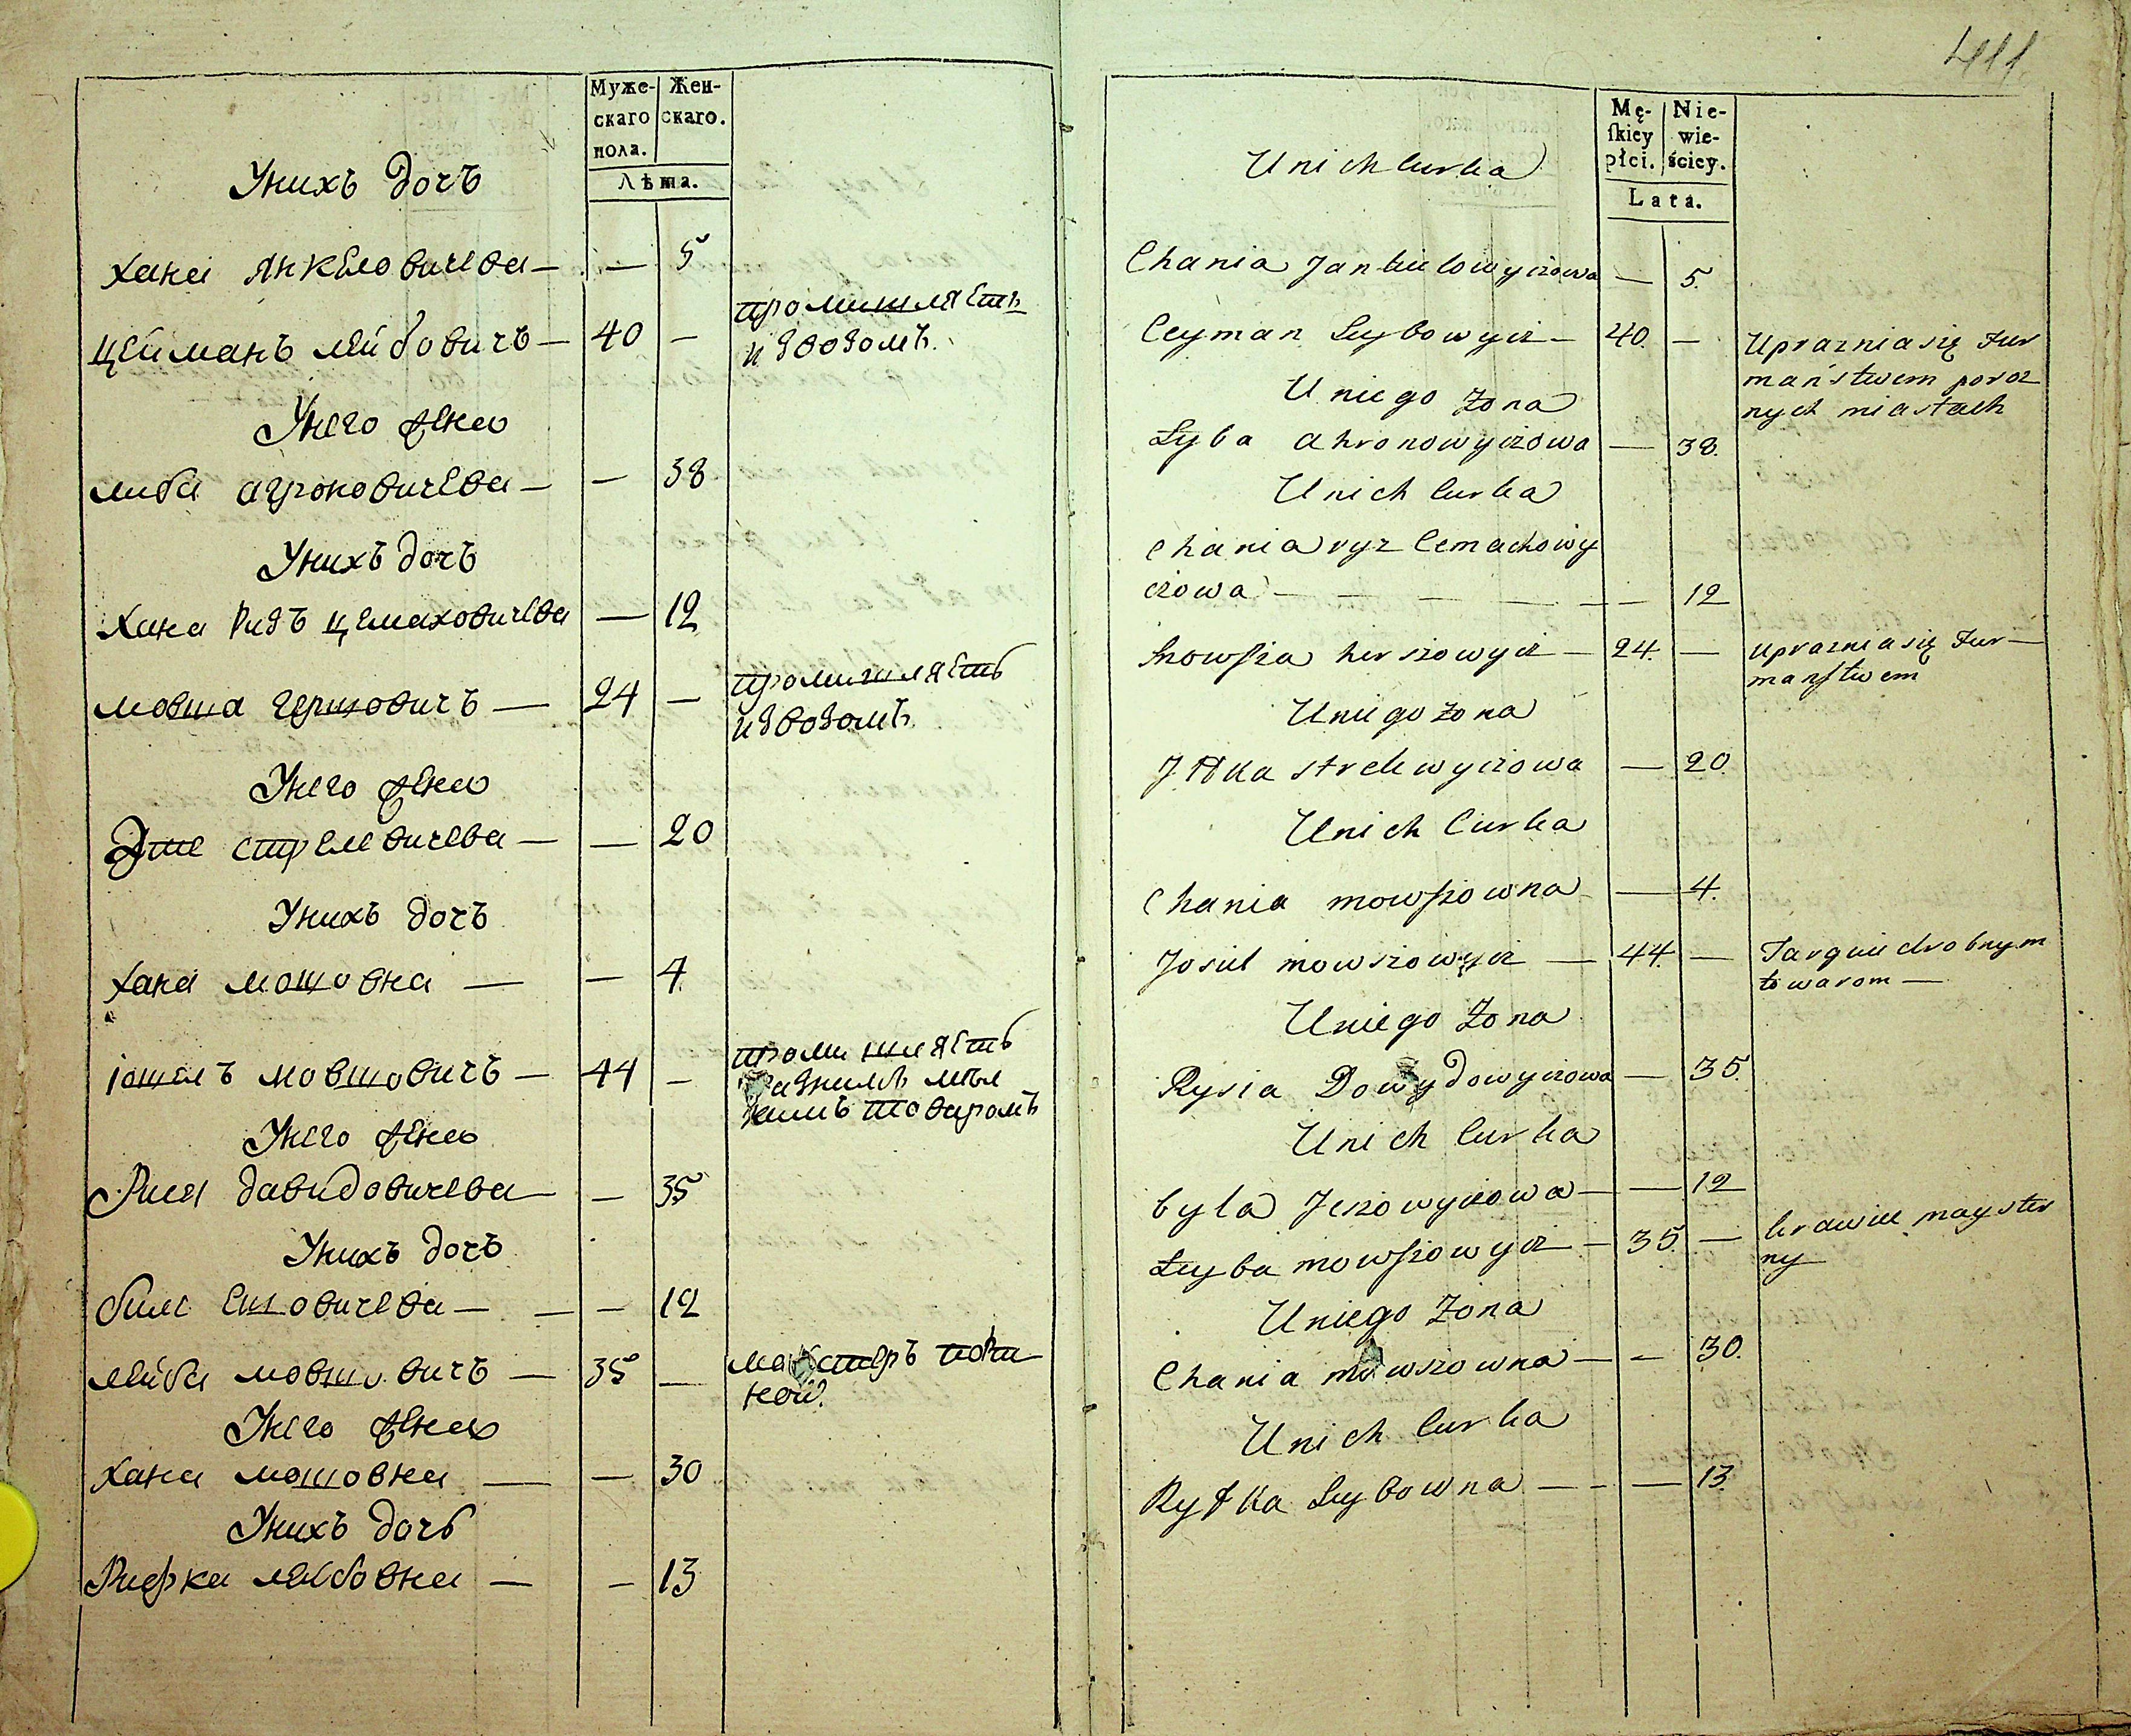 Муже-
скаго
пола.
Жен-
скаго.
Лѣта.
Унихъ дочъ
хана Янкеловичева — — 5
цейманъ лейбовичъ — 40 — промишляетъ
извозомъ.
Унего жена
либа агроновичева — — 38
Унихъ дочъ
Хана Ризъ цемаховичева — 12
мовша гершовичъ — 24 — промишляетъ
извозомъ
Унего жена
Этле стрелевичева — — 20
Унихъ дочъ
хана мошовна — — 4
іошелъ мовшовичъ — 44 — промишляетъ
разнимъ мѣл
кимъ товаромъ
Унего жена
Рися давидовичева — — 35
Унихъ дочъ
била Ешовичева — — — 12
лейба мовшовичъ — 35 — майстеръ порт
ной.
Унего жена
хана мошовна — — 30
Унихъ дочъ
Рифка лейбовна — — 13
411
Mę-
ſkiey
płci.
Nie-
wie-
ściey.
Lata.
U nich Curka
Chania Jankielowyczowa — 5.
Ceyman Leybowycz — 40. — Uprazniasię Fur
maństwem poroz
nych miastach
U niego Żona
Lyba ahronowyczowa — 38.
U nich Curka
Chania ryz Cemachowy
czowa — — — — — — 12
Mowſza herszowycz — 24. — uprazniasię Fur—
manſtwem
Uniego żona
JTka strelewyczowa — 20.
Unich Curka
Chania mowſzowna — 4.
Josiel mowszowycz — 44. — Targuie drobnym
towarom —
Uniego Żona
Rysia Dowydowyczowa — 35.
Unich Curka
byla Jeszowyczowa — — 12
Leyba mowſzowycz — 35. — krawiec mayster
ny
Uniego Żona
Chania mowszowna — — 30.
Unich Curka
Ryfka Leybowna — — — 13.